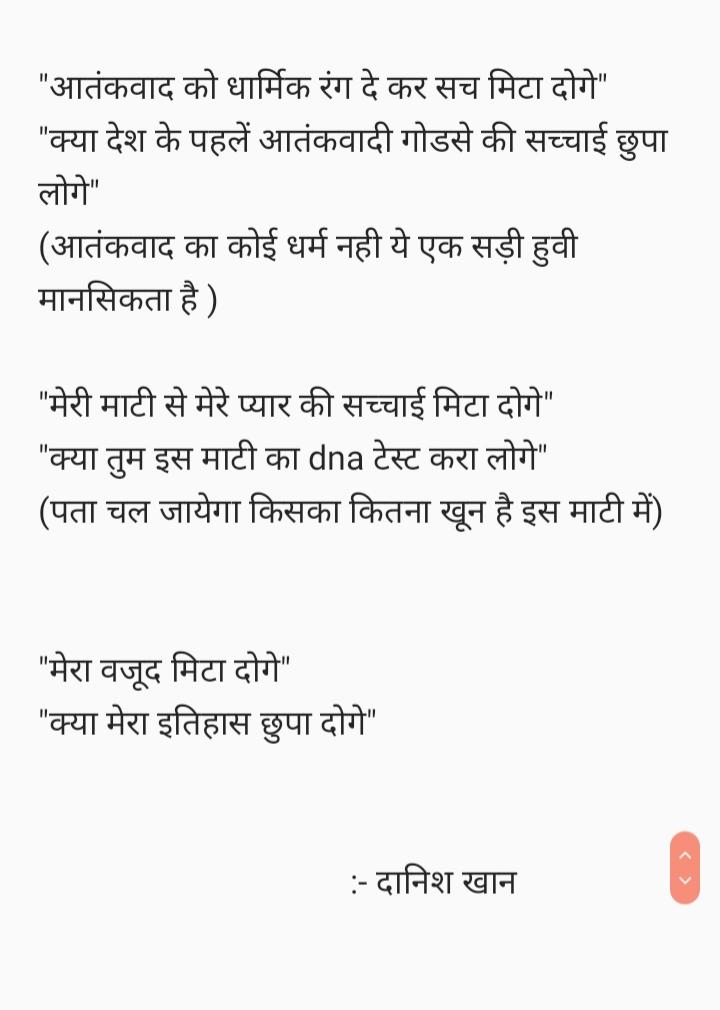 "आतंकवाद को धार्मिक रंग दे कर सच मिटा दोगे"
"क्या देश के पहलें आतंकवादी गोडसे की सच्चाई छुपा
लोगे"
(आतंकवाद का कोई धर्म नही ये एक सड़ी हुवी
मानसिकता है )
"मेरी माटी से मेरे प्यार की सच्चाई मिटा दोगे"
"क्या तुम इस माटी का dna टेस्ट करा लोगे"
(पता चल जायेगा किसका कितना खून है इस माटी में)
"मेरा वजूद मिटा दोगे"
"क्या मेरा इतिहास छुपा दोगे"
:- दानिश खान